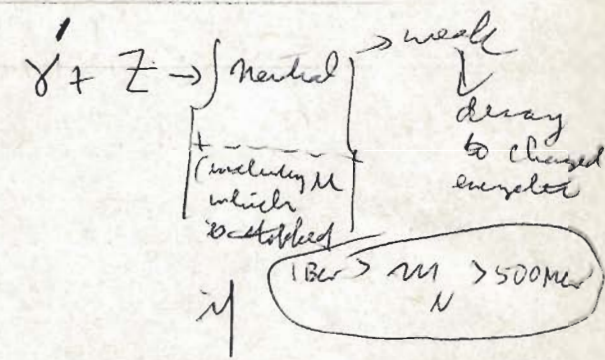 γ + Z → { neutral } → weak
↓
decay
to charged
(including μ
which
is stopped
if
1 Bev > m_N > 500 Mev